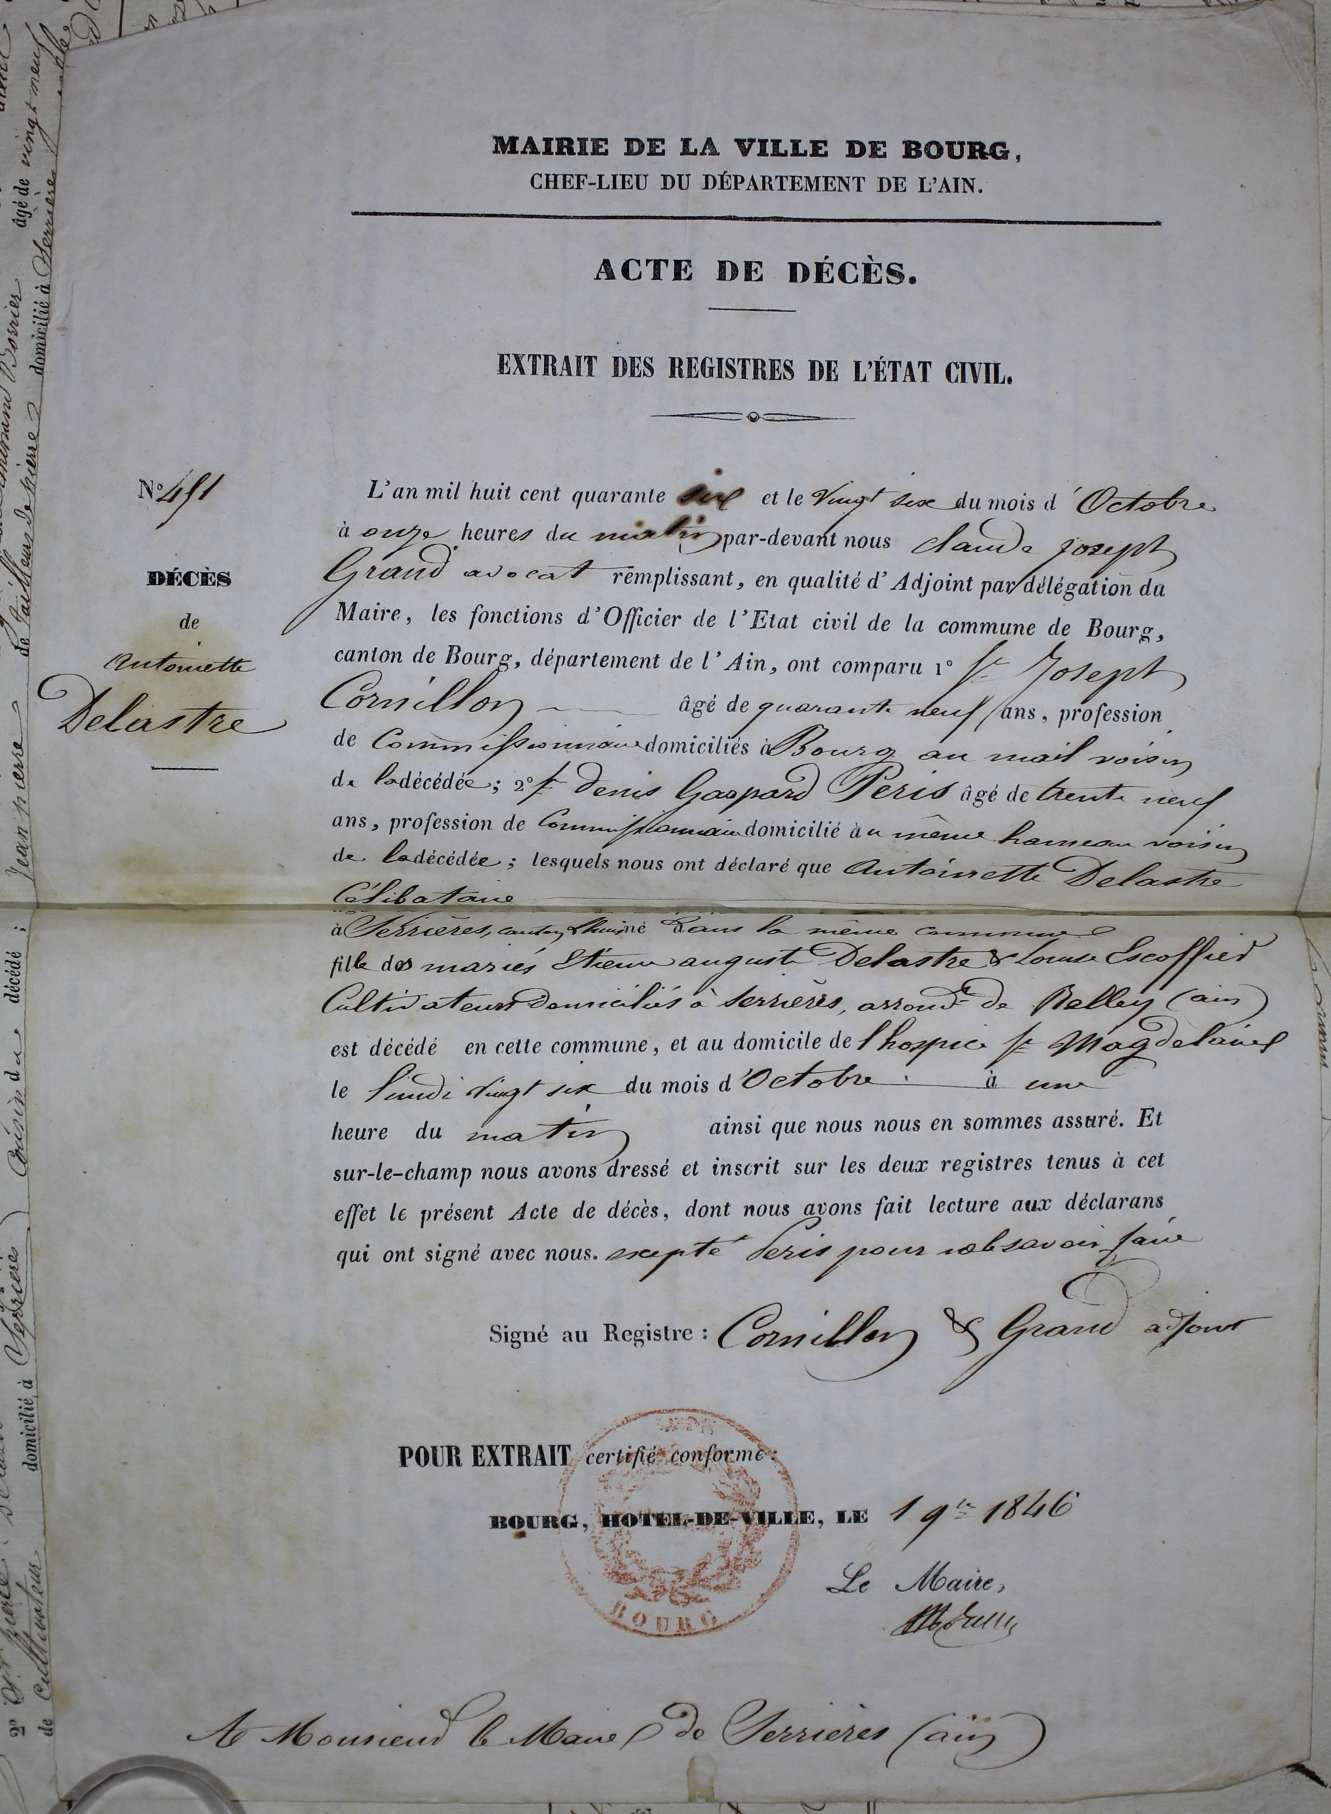 MAIRIE DE LA VILLE DE BOURG,
CHEF-LIEU DU DÉPARTEMENT DE L'AIN.
ACTE DE DÉCÈS.
EXTRAIT DES REGISTRES DE L'ÉTAT CIVIL.
N° 451
DÉCÈS
de
Antoinette
Delastre
L'an mil huit cent quarante six et le Vingt six du mois d'Octobre
à onze heures du matin par-devant nous Claude Joseph
Grand avocat remplissant, en qualité d'Adjoint par délégation du
Maire, les fonctions d'Officier de l'Etat civil de la commune de Bourg,
canton de Bourg, département de l'Ain, ont comparu 1° Sr Joseph
Cornillon âgé de quarante neuf ans, profession
de Commissionnaire domiciliés à Bourg au mail voisin
de la décédée; 2° Sr Denis Gaspard Peris âgé de trente neuf
ans, profession de Commissionnaire domicilié au même hameau voisin
de la décédée; lesquels nous ont déclaré que Antoinette Delastre
Célibataire
à Serrières, canton né dans la même commune
fille des mariés Etienne august Delastre & Louise Escoffier
Cultivateurs domiciliés à Serrières, arrondt de Belley (ain)
est décédé en cette commune, et au domicile de l'hospice Ste Magdelaine
le lundi vingt six du mois d'Octobre à une
heure du matin ainsi que nous nous en sommes assuré. Et
sur-le-champ nous avons dressé et inscrit sur les deux registres tenus à cet
effet le présent Acte de décès, dont nous avons fait lecture aux déclarans
qui ont signé avec nous. excepté Peris pour ne le savoir faire
Signé au Registre: Cornillon & Grand adjoint
POUR EXTRAIT certifié conforme:
BOURG, HOTEL-DE-VILLE, LE 1 9bre 1846
Le Maire,
BOURG
A Monsieur le Maire de Serrières (ain)
âgé de vingt neuf
domicilié à Serrières
de Tailleur de pierre
Jean pierre
Cousin du décédé;
domicilié à Serrières
de Cultivateur